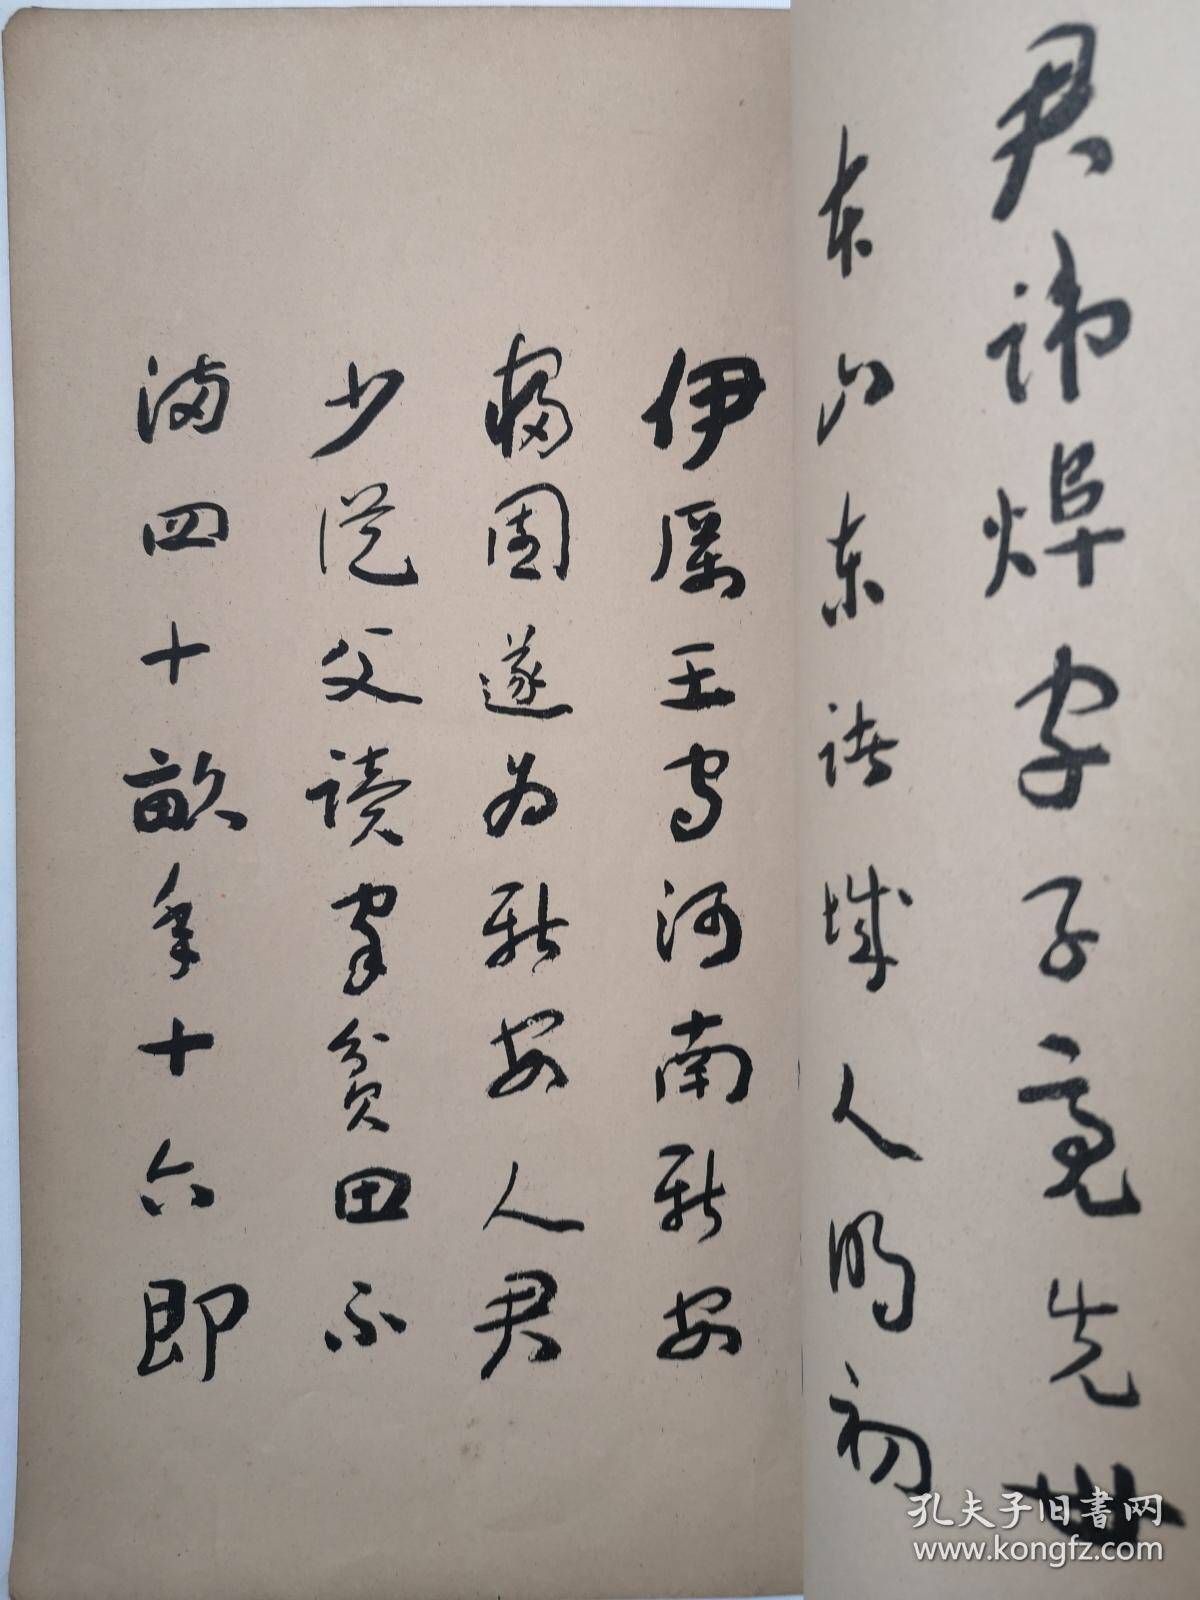 君讳焊字子亮先世
本山东诸城人明初
伊厉王守河南新安
囿遂为新安人君
少从父读家贫田不
满四十亩年十六即
孔夫子旧书网
www.kongfz.com